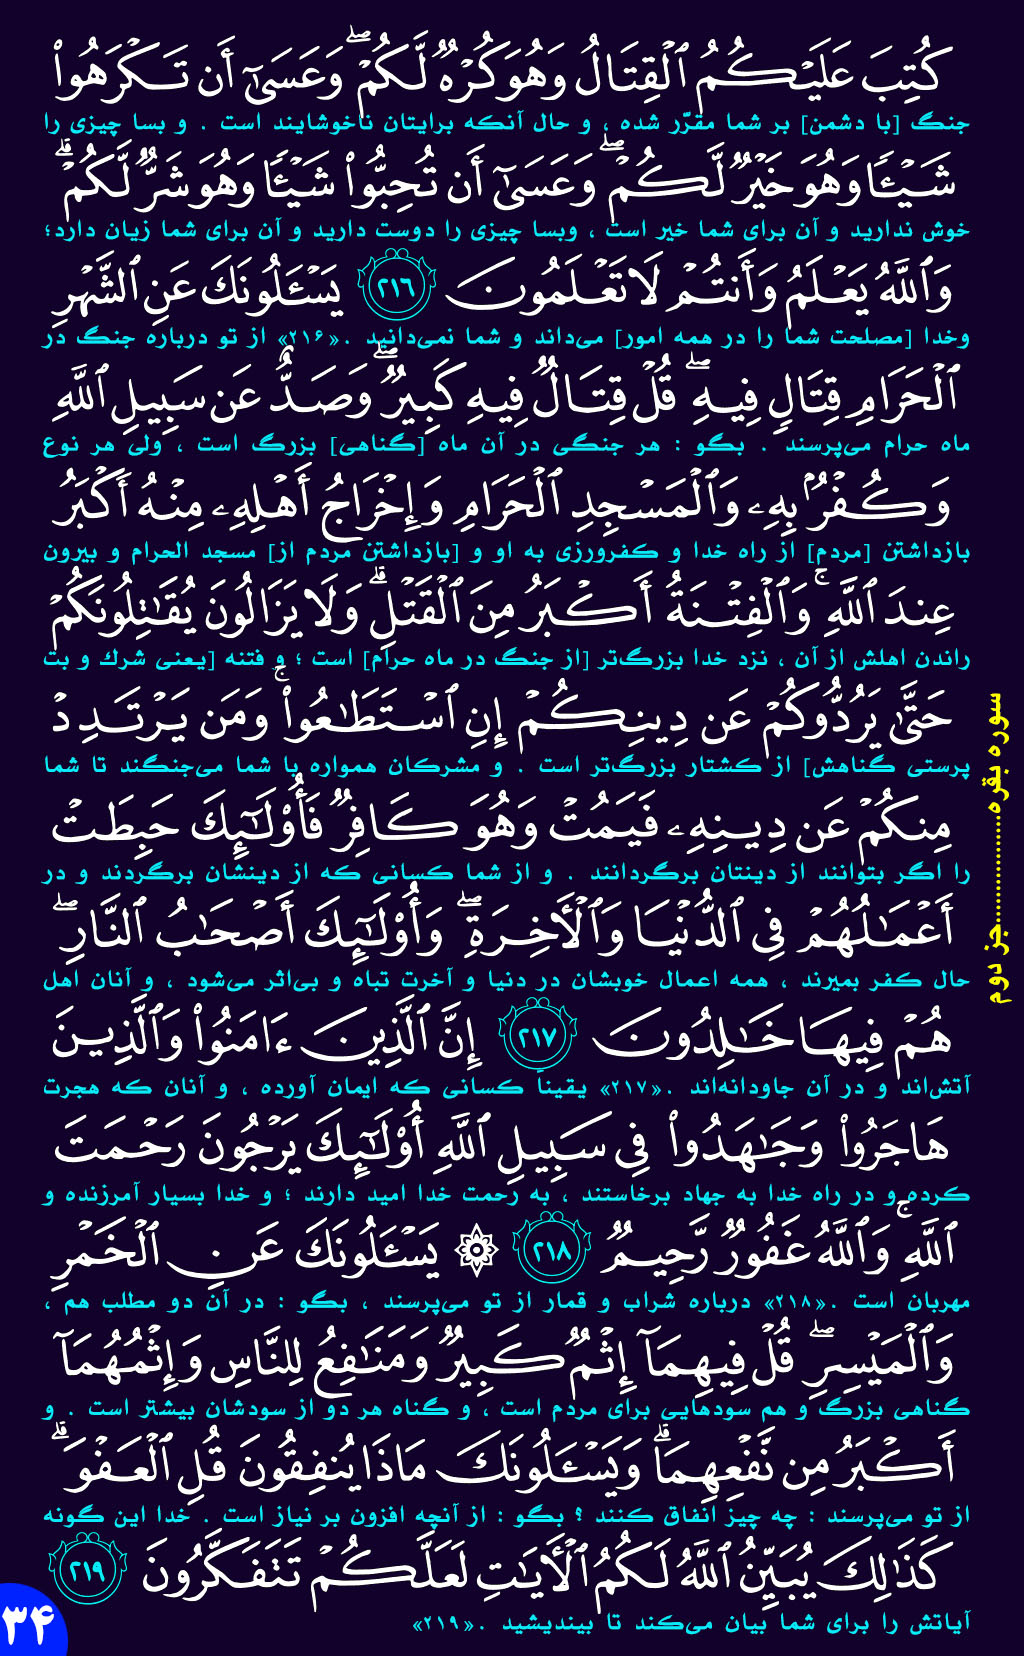 كُتِبَ عَلَيْكُمُ ٱلْقِتَالُ وَهُوَ كُرْهٌ لَّكُمْ ۖ وَعَسَىٰٓ أَن تَكْرَهُوا۟
جنگ [با دشمن] بر شما مقرّر شده ، و حال آنكه برايتان ناخوشايند است . و بسا چيزى را
شَيْـًٔا وَهُوَ خَيْرٌ لَّكُمْ ۖ وَعَسَىٰٓ أَن تُحِبُّوا۟ شَيْـًٔا وَهُوَ شَرٌّ لَّكُمْ ۗ
خوش نداريد و آن براى شما خير است ، وبسا چيزى را دوست داريد و آن براى شما زيان دارد؛
وَٱللَّهُ يَعْلَمُ وَأَنتُمْ لَا تَعْلَمُونَ ٢١٦ يَسْـَٔلُونَكَ عَنِ ٱلشَّهْرِ
وخدا [مصلحت شما را در همه امور] مى‌داند و شما نمى‌دانيد .«۲۱۶» از تو درباره جنگ در
ٱلْحَرَامِ قِتَالٍ فِيهِ ۖ قُلْ قِتَالٌ فِيهِ كَبِيرٌ ۖ وَصَدٌّ عَن سَبِيلِ ٱللَّهِ
ماه حرام مى‌پرسند . بگو : هر جنگى در آن ماه [گناهى] بزرگ است ، ولى هر نوع
وَكُفْرٌۢ بِهِۦ وَٱلْمَسْجِدِ ٱلْحَرَامِ وَإِخْرَاجُ أَهْلِهِۦ مِنْهُ أَكْبَرُ
بازداشتن [مردم] از راه خدا و كفرورزى به او و [بازداشتن مردم از] مسجد الحرام و بيرون
عِندَ ٱللَّهِ ۚ وَٱلْفِتْنَةُ أَكْبَرُ مِنَ ٱلْقَتْلِ ۗ وَلَا يَزَالُونَ يُقَـٰتِلُونَكُمْ
راندن اهلش از آن ، نزد خدا بزرگ‌تر [از جنگ در ماه حرام] است ؛ و فتنه [يعنى شرك و بت
حَتَّىٰ يَرُدُّوكُمْ عَن دِينِكُمْ إِنِ ٱسْتَطَـٰعُوا۟ ۚ وَمَن يَرْتَدِدْ
پرستى گناهش] از كشتار بزرگ‌تر است . و مشركان همواره با شما مى‌جنگند تا شما
مِنكُمْ عَن دِينِهِۦ فَيَمُتْ وَهُوَ كَافِرٌ فَأُو۟لَـٰٓئِكَ حَبِطَتْ
را اگر بتوانند از دينتان برگردانند . و از شما كسانى كه از دينشان برگردند و در
أَعْمَـٰلُهُمْ فِى ٱلدُّنْيَا وَٱلْـَٔاخِرَةِ ۖ وَأُو۟لَـٰٓئِكَ أَصْحَـٰبُ ٱلنَّارِ ۖ
حال كفر بميرند ، همه اعمال خوبشان در دنيا و آخرت تباه و بى‌اثر مى‌شود ، و آنان اهل
هُمْ فِيهَا خَـٰلِدُونَ ٢١٧ إِنَّ ٱلَّذِينَ ءَامَنُوا۟ وَٱلَّذِينَ
آتش‌اند و در آن جاودانه‌اند .«۲۱۷» يقيناً كسانى كه ايمان آورده ، و آنان كه هجرت
هَاجَرُوا۟ وَجَـٰهَدُوا۟ فِى سَبِيلِ ٱللَّهِ أُو۟لَـٰٓئِكَ يَرْجُونَ رَحْمَتَ
كرده و در راه خدا به جهاد برخاستند ، به رحمت خدا اميد دارند ؛ و خدا بسيار آمرزنده و
ٱللَّهِ ۚ وَٱللَّهُ غَفُورٌ رَّحِيمٌ ٢١٨ ۞ يَسْـَٔلُونَكَ عَنِ ٱلْخَمْرِ
مهربان است .«۲۱۸» درباره شراب و قمار از تو مى‌پرسند ، بگو : در آن دو مطلب هم ،
وَٱلْمَيْسِرِ ۖ قُلْ فِيهِمَآ إِثْمٌ كَبِيرٌ وَمَنَـٰفِعُ لِلنَّاسِ وَإِثْمُهُمَآ
گناهى بزرگ و هم سودهايى براى مردم است ، و گناه هر دو از سودشان بيشتر است . و
أَكْبَرُ مِن نَّفْعِهِمَا ۗ وَيَسْـَٔلُونَكَ مَاذَا يُنفِقُونَ قُلِ ٱلْعَفْوَ ۗ
از تو مى‌پرسند : چه چيز انفاق كنند ؟ بگو : از آنچه افزون بر نياز است . خدا اين گونه
كَذَٰلِكَ يُبَيِّنُ ٱللَّهُ لَكُمُ ٱلْـَٔايَـٰتِ لَعَلَّكُمْ تَتَفَكَّرُونَ ٢١٩
آياتش را براى شما بيان مى‌كند تا بينديشيد .«۲۱۹»
سوره بقره....................جز دوم
۳۴